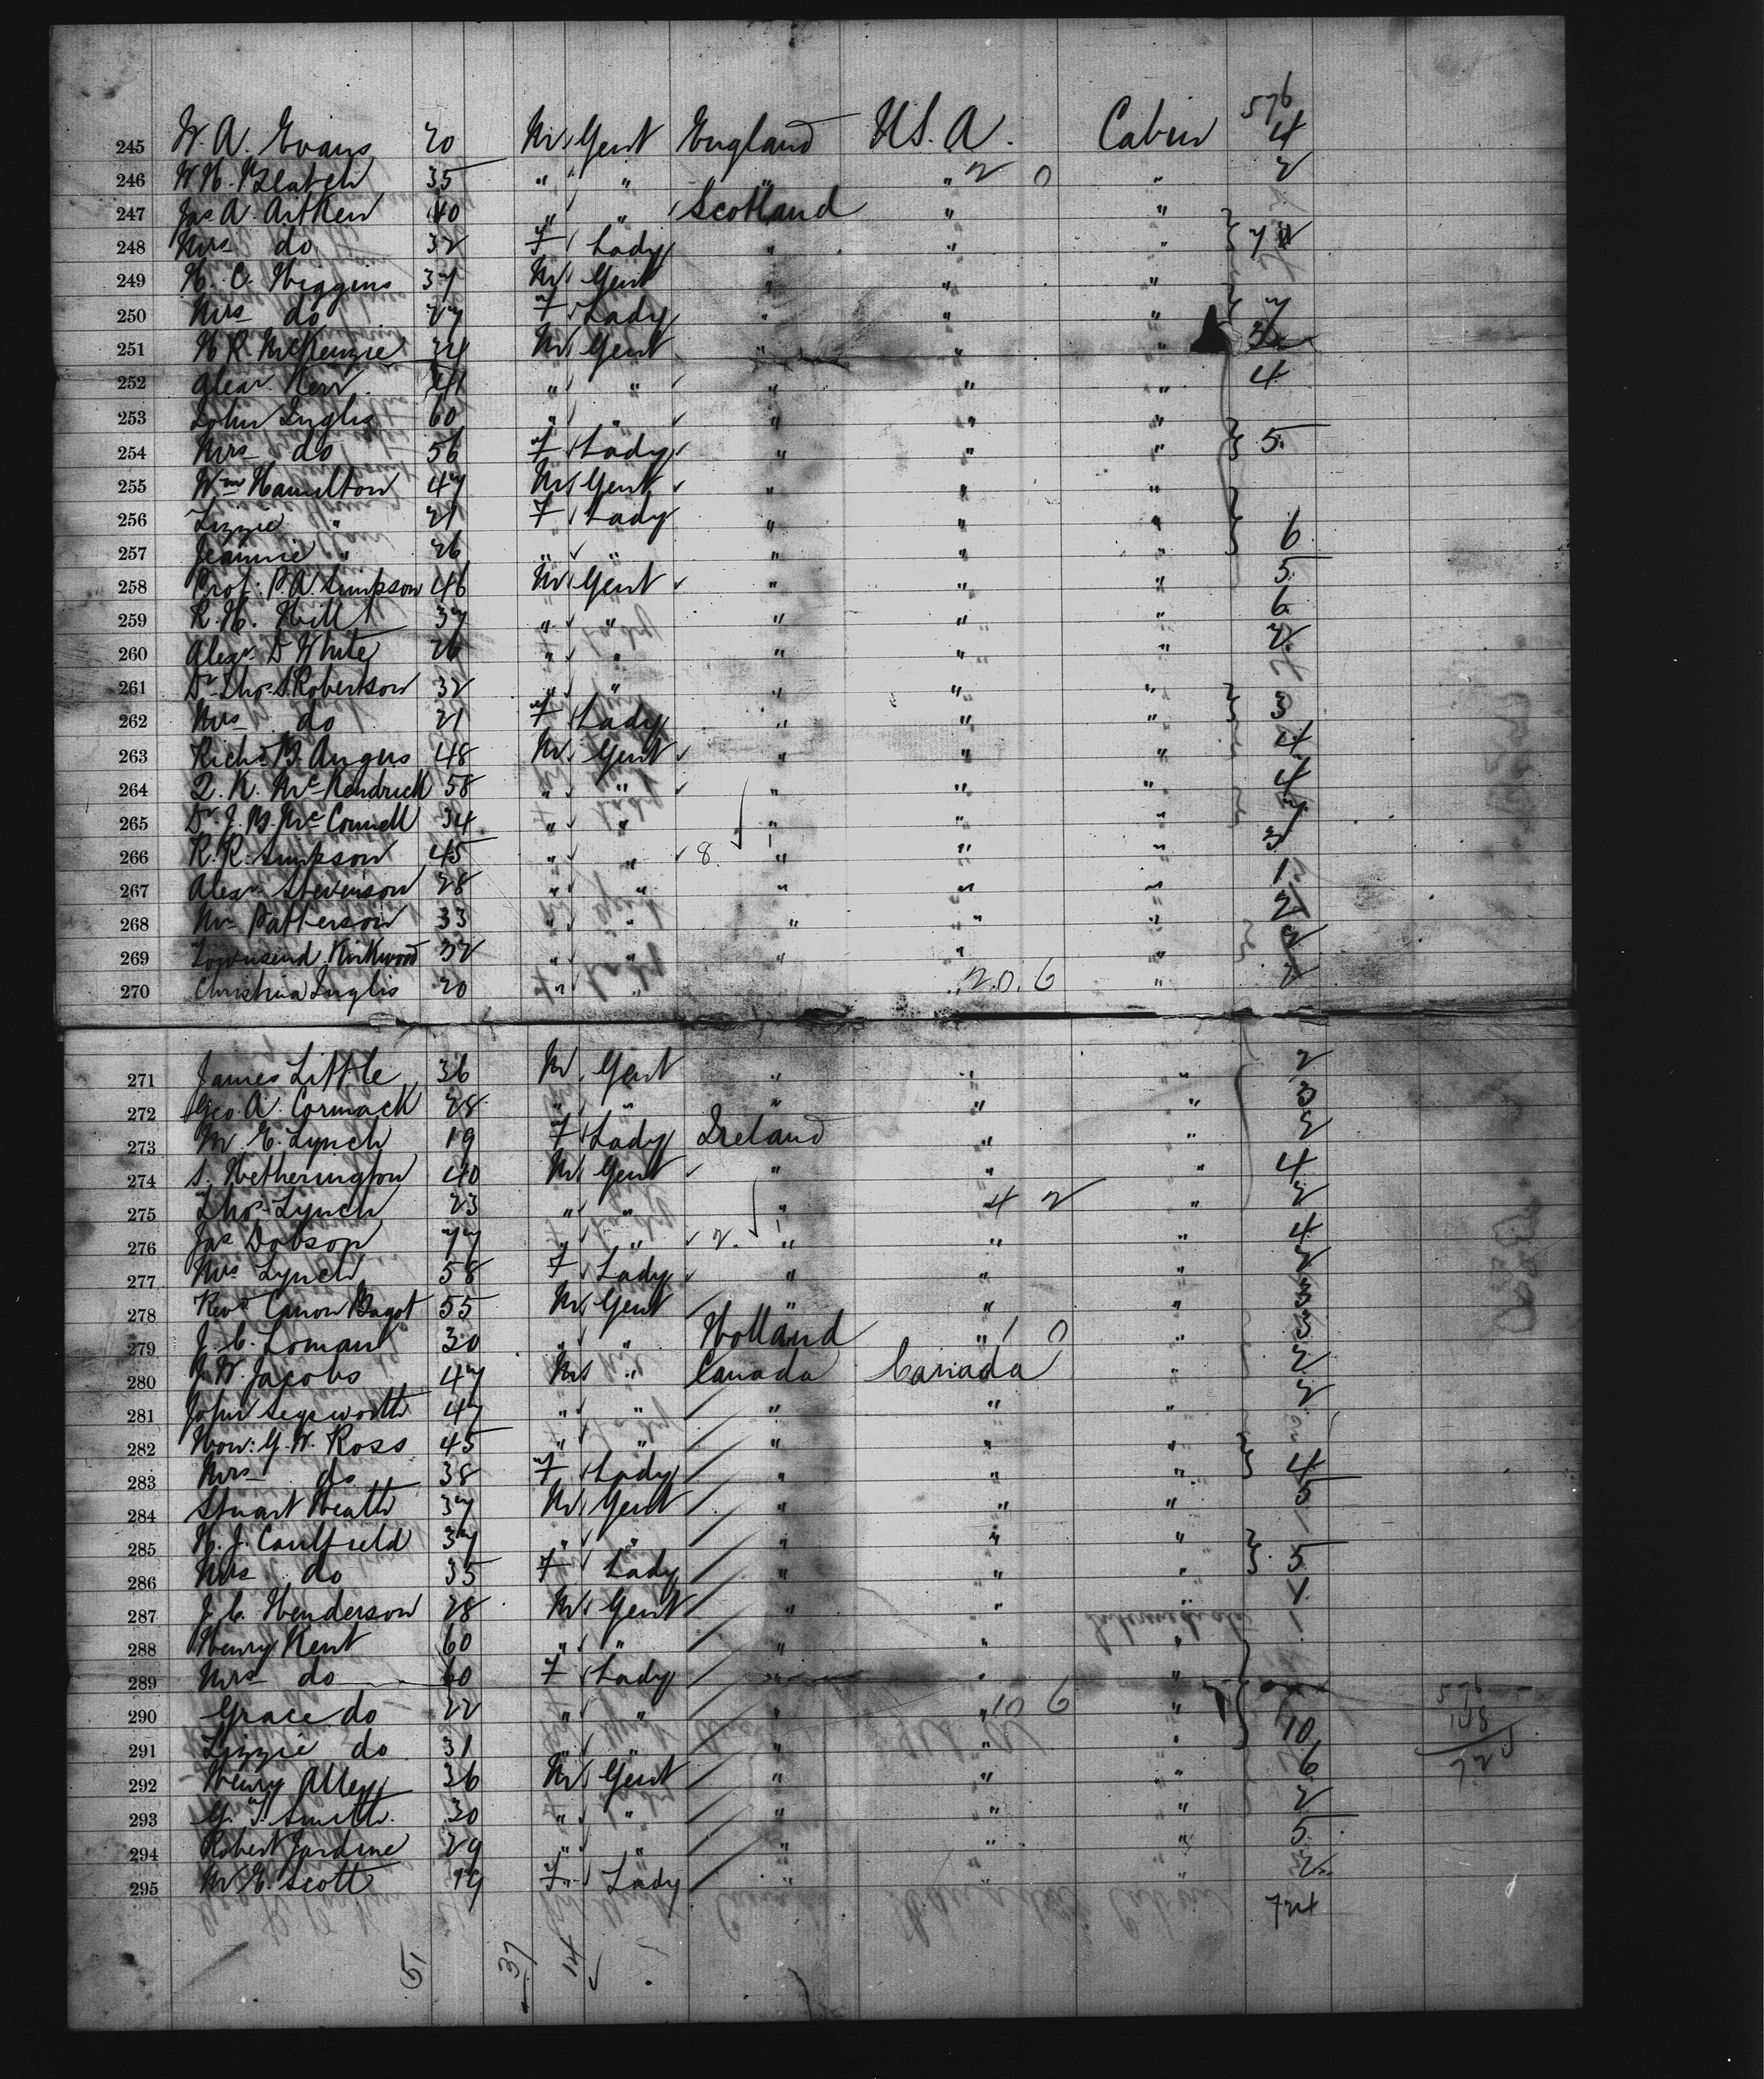 576
245 W. A. Evans 20 M Gent England U.S.A. Cabin 4
246 W H. Blatch 35 " " " " 2 0 " 2
247 Jas A. Aitken 40 " " Scotland " "
248 Mrs do 32 F Lady " " "
249 H. C. Higgins 37 M Gent " " "
250 Mrs do 27 F Lady " " " 7
251 H R. McKenzie 34 M Gent " " " 3
252 Alexr Kerr 41 " " " " " 4
253 John Inglis 60 " " " " "
254 Mrs do 56 F Lady " " " 5
255 Wm Hamilton 47 M Gent " " "
256 Lizzie " 21 F Lady " " "
257 Jeannie " 26 " " " " " 6
258 Prof: P. A. Simpson 46 M Gent " " " 5
259 R. H. Hill 37 " " " " " 6
260 Alexr D White 26 " " " " " 2
261 Dr Thos S Robertson 32 " " " " "
262 Mrs do 21 F Lady " " " 3
263 Richd B. Angus 48 M Gent " " " 4
264 Q. K. McKendrick 58 " " " " " 4
265 Dr J. B. McConnell 34 " " " " "
266 R. R. Simpson 45 " " 8 " " " 3
267 Alexr Stevenson 28 " " " " " 1
268 Mr Patterson 33 " " " " " 2
269 Townsend Kirkwood 32 " " " " " 2
270 Christina Inglis 20 " " " 20.6 " 2
271 James Little 36 M Gent " " " 2
272 Geo. A. Cormack 28 " " " " " 3
273 M. E. Lynch 19 F Lady Ireland " " 2
274 S. Hetherington 40 M Gent " " " 4
275 Thos Lynch 23 " " " 4 2 " 2
276 Jas Dobson 77 " " 2. " " " 4
277 Mrs Lynch 58 F Lady " " " 2
278 Revd Canon Bagot 55 M Gent " " " 3
279 J. C. Loman 30 " " Holland " 1 0 " 3
280 J. W. Jacobs 47 M " Canada Canada " 2
281 John Segsworth 47 " " " " " 2
282 Hon: G. W. Ross 45 " " " " "
283 Mrs do 38 F Lady " " " 4
284 Stuart Heath 37 M Gent " " " 5
285 H. J. Caulfield 37 " " " " "
286 Mrs do 35 F Lady " " " 5
287 J. C. Henderson 28 M Gent " " " 1
288 Henry Kent 60 " " " " "
289 Mrs do 60 F Lady " " "
290 Grace do 22 " " " " 10 6 "
291 Lizzie do 31 " " " " " 10
292 Henry Alley 36 M Gent " " " 6
293 G. T. Smith 30 " " " " " 2
294 Robert Jardine 29 " " " " " 5
295 M E. Scott 19 F Lady " " " 2
576
148
724
51 37 14